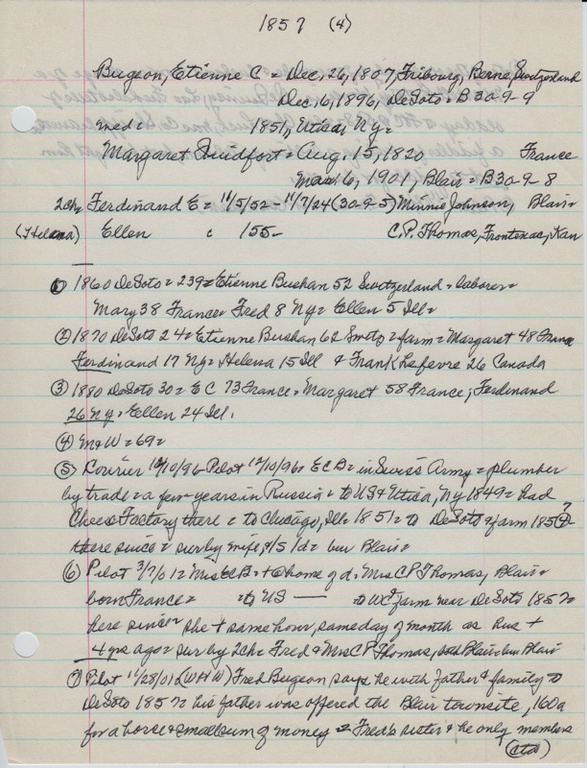 1857 (4)
Bugeon, Etienne C = Dec. 26, 1807, Fribourg, Berne, Switzerland
Dec. 16, 1896, DeSoto = B 30-9-9
med = 1851, Utica, Ny =
Margaret = Aug. 15, 1820 France
Mar. 6, 1901, Blair = B30-9-8
2ch = Ferdinand E = 11/5/52 - 11/7/24 (30-9-5) Minnie Johnson, Blair =
(Helena) Ellen c 155- C.P. Thomas, Frontenac, Kan
① 1860 DeSoto = 239 = Etienne Bushan 52 Switzerland = laborer =
Mary 38 France = Fred 8 Ny = Ellen 5 Ill =
② 1870 DeSoto 24 = Etienne Bushan 62 = farm = Margaret 48 France
Ferdinand 17 Ny = Helena 15 Ill & Frank Lefevre 26 Canada
③ 1880 DeSoto 30 = E C 73 France = Margaret 58 France; Ferdinand
26 Ny = Ellen 24 Ill.
④ M & W = 69 =
⑤ Courier 12/10/96 - Pilot 12/10/96 = E C B = in Swiss Army = plumber
by trade = a few years in Russia = to US & Utica, Ny 1849 = had
Cheese Factory there = to Chicago, Ill = 1851 = to DeSoto & farm 1857
there since = sur by wife, 1s 1d = bur Blair =
⑥ Pilot 3/7/01 = Mrs E B = + @ home of d. Mrs C P Thomas, Blair =
born France = to US — to WC farm near DeSoto 1857 =
here since = she + same hour, same day of month as hus +
4 yrs ago = sur by 2ch = Fred & Mrs C P Thomas, both Blair = bur Blair
⑦ Pilot 11/28/01 = (WHW) Fred Bugeon says he with father & family to
DeSoto 1857 = his father was offered the Blair townsite, 160a
for a horse & small sum of money = Fred's sister & he only members
(ctd)